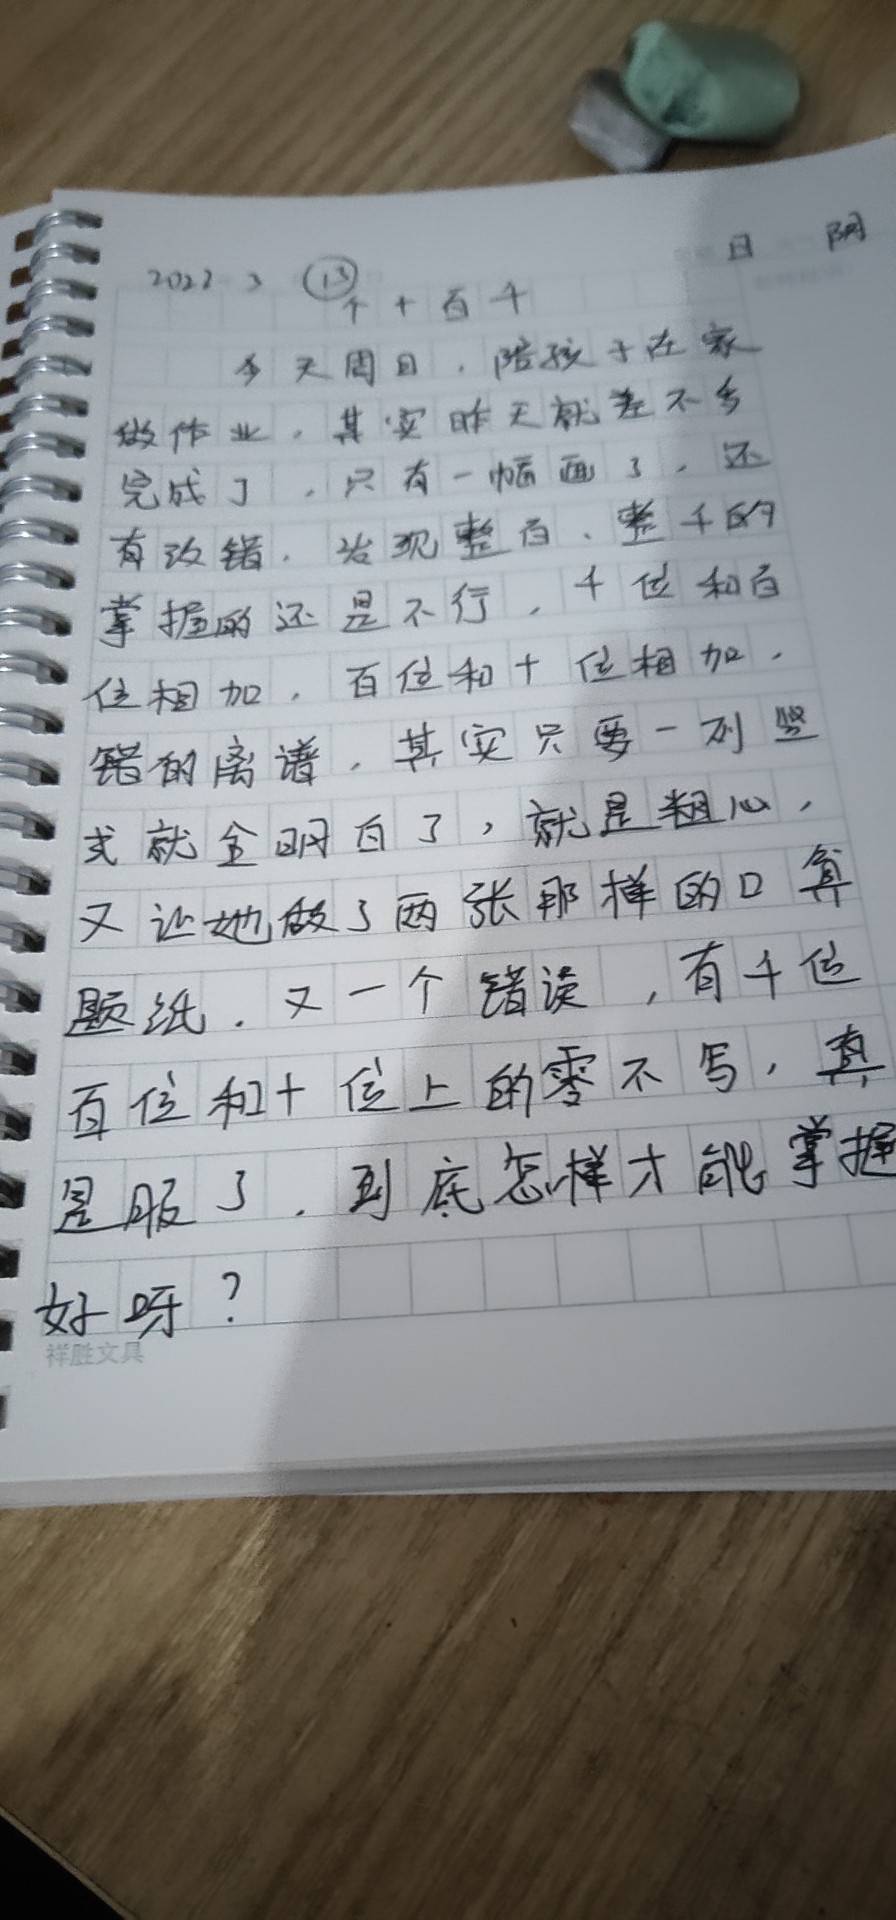 2022 3 13 日 阴
个十百千
今天周日，陪孩子在家
做作业，其实昨天就差不多
完成了，只有一幅画了，还
有改错，发现整百、整千的
掌握的还是不行，千位和百
位相加，百位和十位相加，
错的离谱，其实只要一列竖
式就全明白了，就是粗心，
又让她做了两张那样的口算
题纸．又一个错误，有千位
百位和十位上的零不写，真
是服了．到底怎样才能掌握
好呀？
祥胜文具